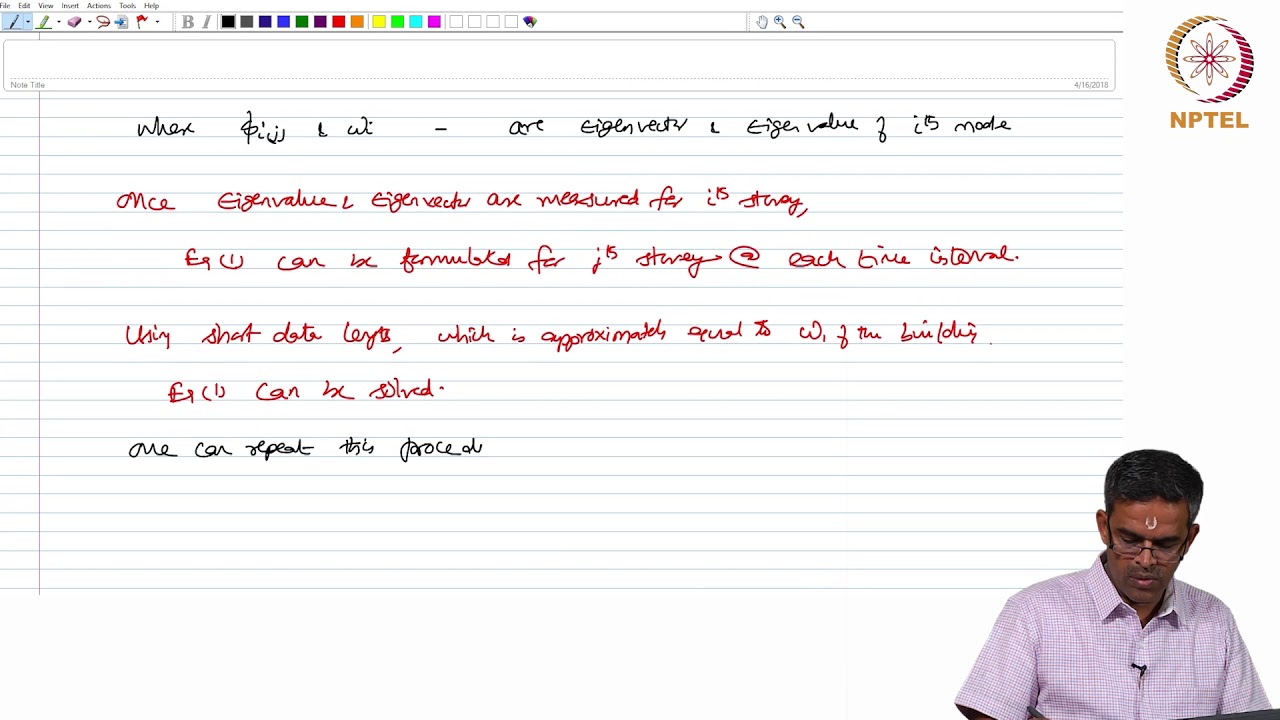 File Edit View Insert Actions Tools Help
B I
NPTEL
Note Title 4/16/2018
where ϕi,j & ωi - are Eigenvector & Eigenvalue of ith mode
Once Eigenvalue & Eigenvector are measured for ith storey,
Eq (1) can be formulated for jth storey @ each time interval.
Using short data length, which is approximately equal to ω1 of the building.
Eq (1) can be solved.
One can repeat this proced